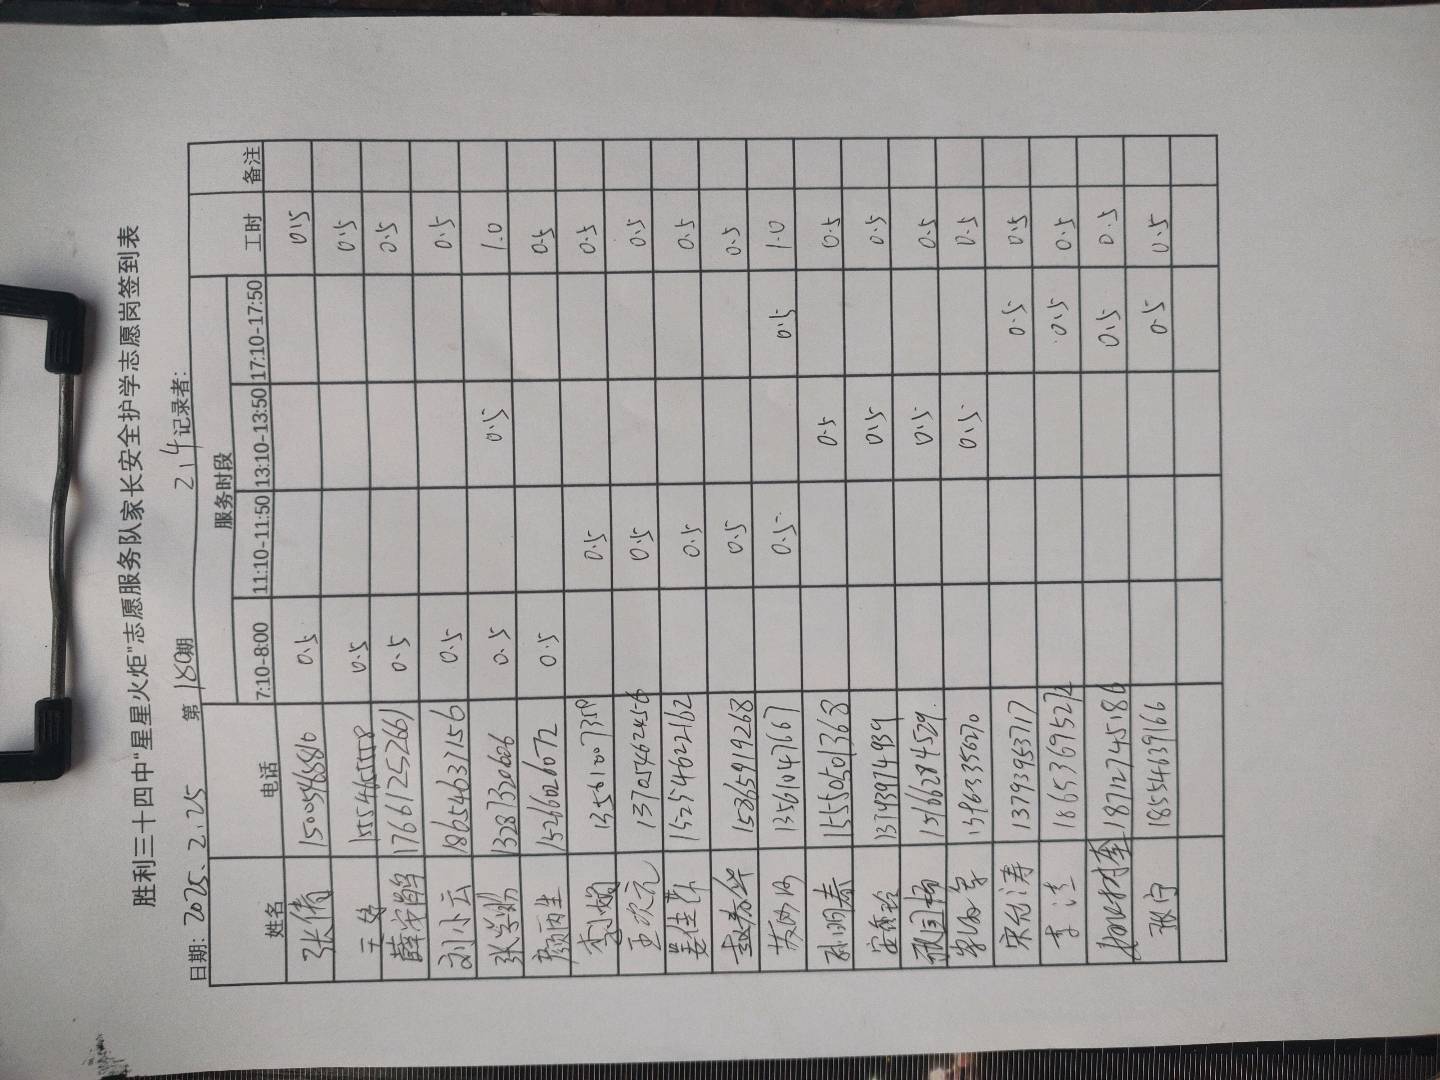 胜利三十四中“星星火炬”志愿服务队家长安全护学志愿岗签到表
日期: 2025.2.25 第180期 2.4 记录者:
姓名 电话 服务时段 工时 备注
7:10-8:00 11:10-11:50 13:10-13:50 17:10-17:50
张倩 15005468610 0.5 0.5
王 15546555558 0.5 0.5
薛 17661252661 0.5 0.5
刘小云 18654637156 0.5 0.5
张学 13287320606 0.5 0.5 1.0
颜丙生 15266026072 0.5 0.5
李 0.5 0.5
王次元 13705462456 0.5 0.5
姜佳 15254622162 0.5 0.5
春华 15865919268 0.5 0.5
13561047667 0.5 0.5 1.0
孙明春 15550501363 0.5 0.5
安 13793974939 0.5 0.5
国 15166284529 0.5 0.5
军 13963335670 0.5 0.5
宋允涛 13793953717 0.5 0.5
李洁 18653695272 0.5 0.5
18712745186 0.5 0.5
张宁 18554639166 0.5 0.5